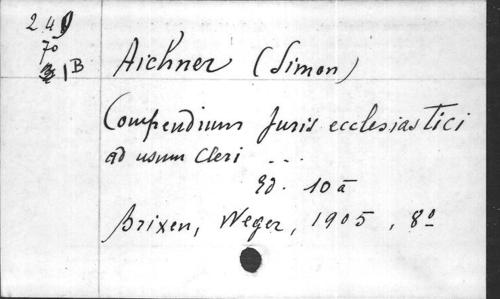 24
70
1B
Aichner (Simon)
Compendium Juris ecclesiastici
ad usum Cleri ...
Ed. 10ª
Brixen, Weger, 1905, 8º